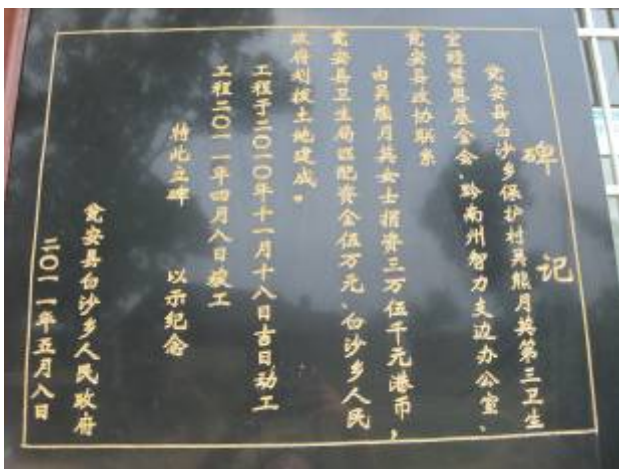 碑记
瓮安县白沙乡保护村吴熊月英第三卫生
室经慈恩基金会、黔南州智力支边办公室、
瓮安县政协联系
由吴熊月英女士捐资三万伍千元港币，
瓮安县卫生局匹配资金伍万元、白沙乡人民
政府划拨土地建成。
工程于二〇一〇年十一月十八日吉日动工
工程二〇一一年四月八日竣工
特此立碑 以示纪念
瓮安县白沙乡人民政府
二〇一一年五月八日